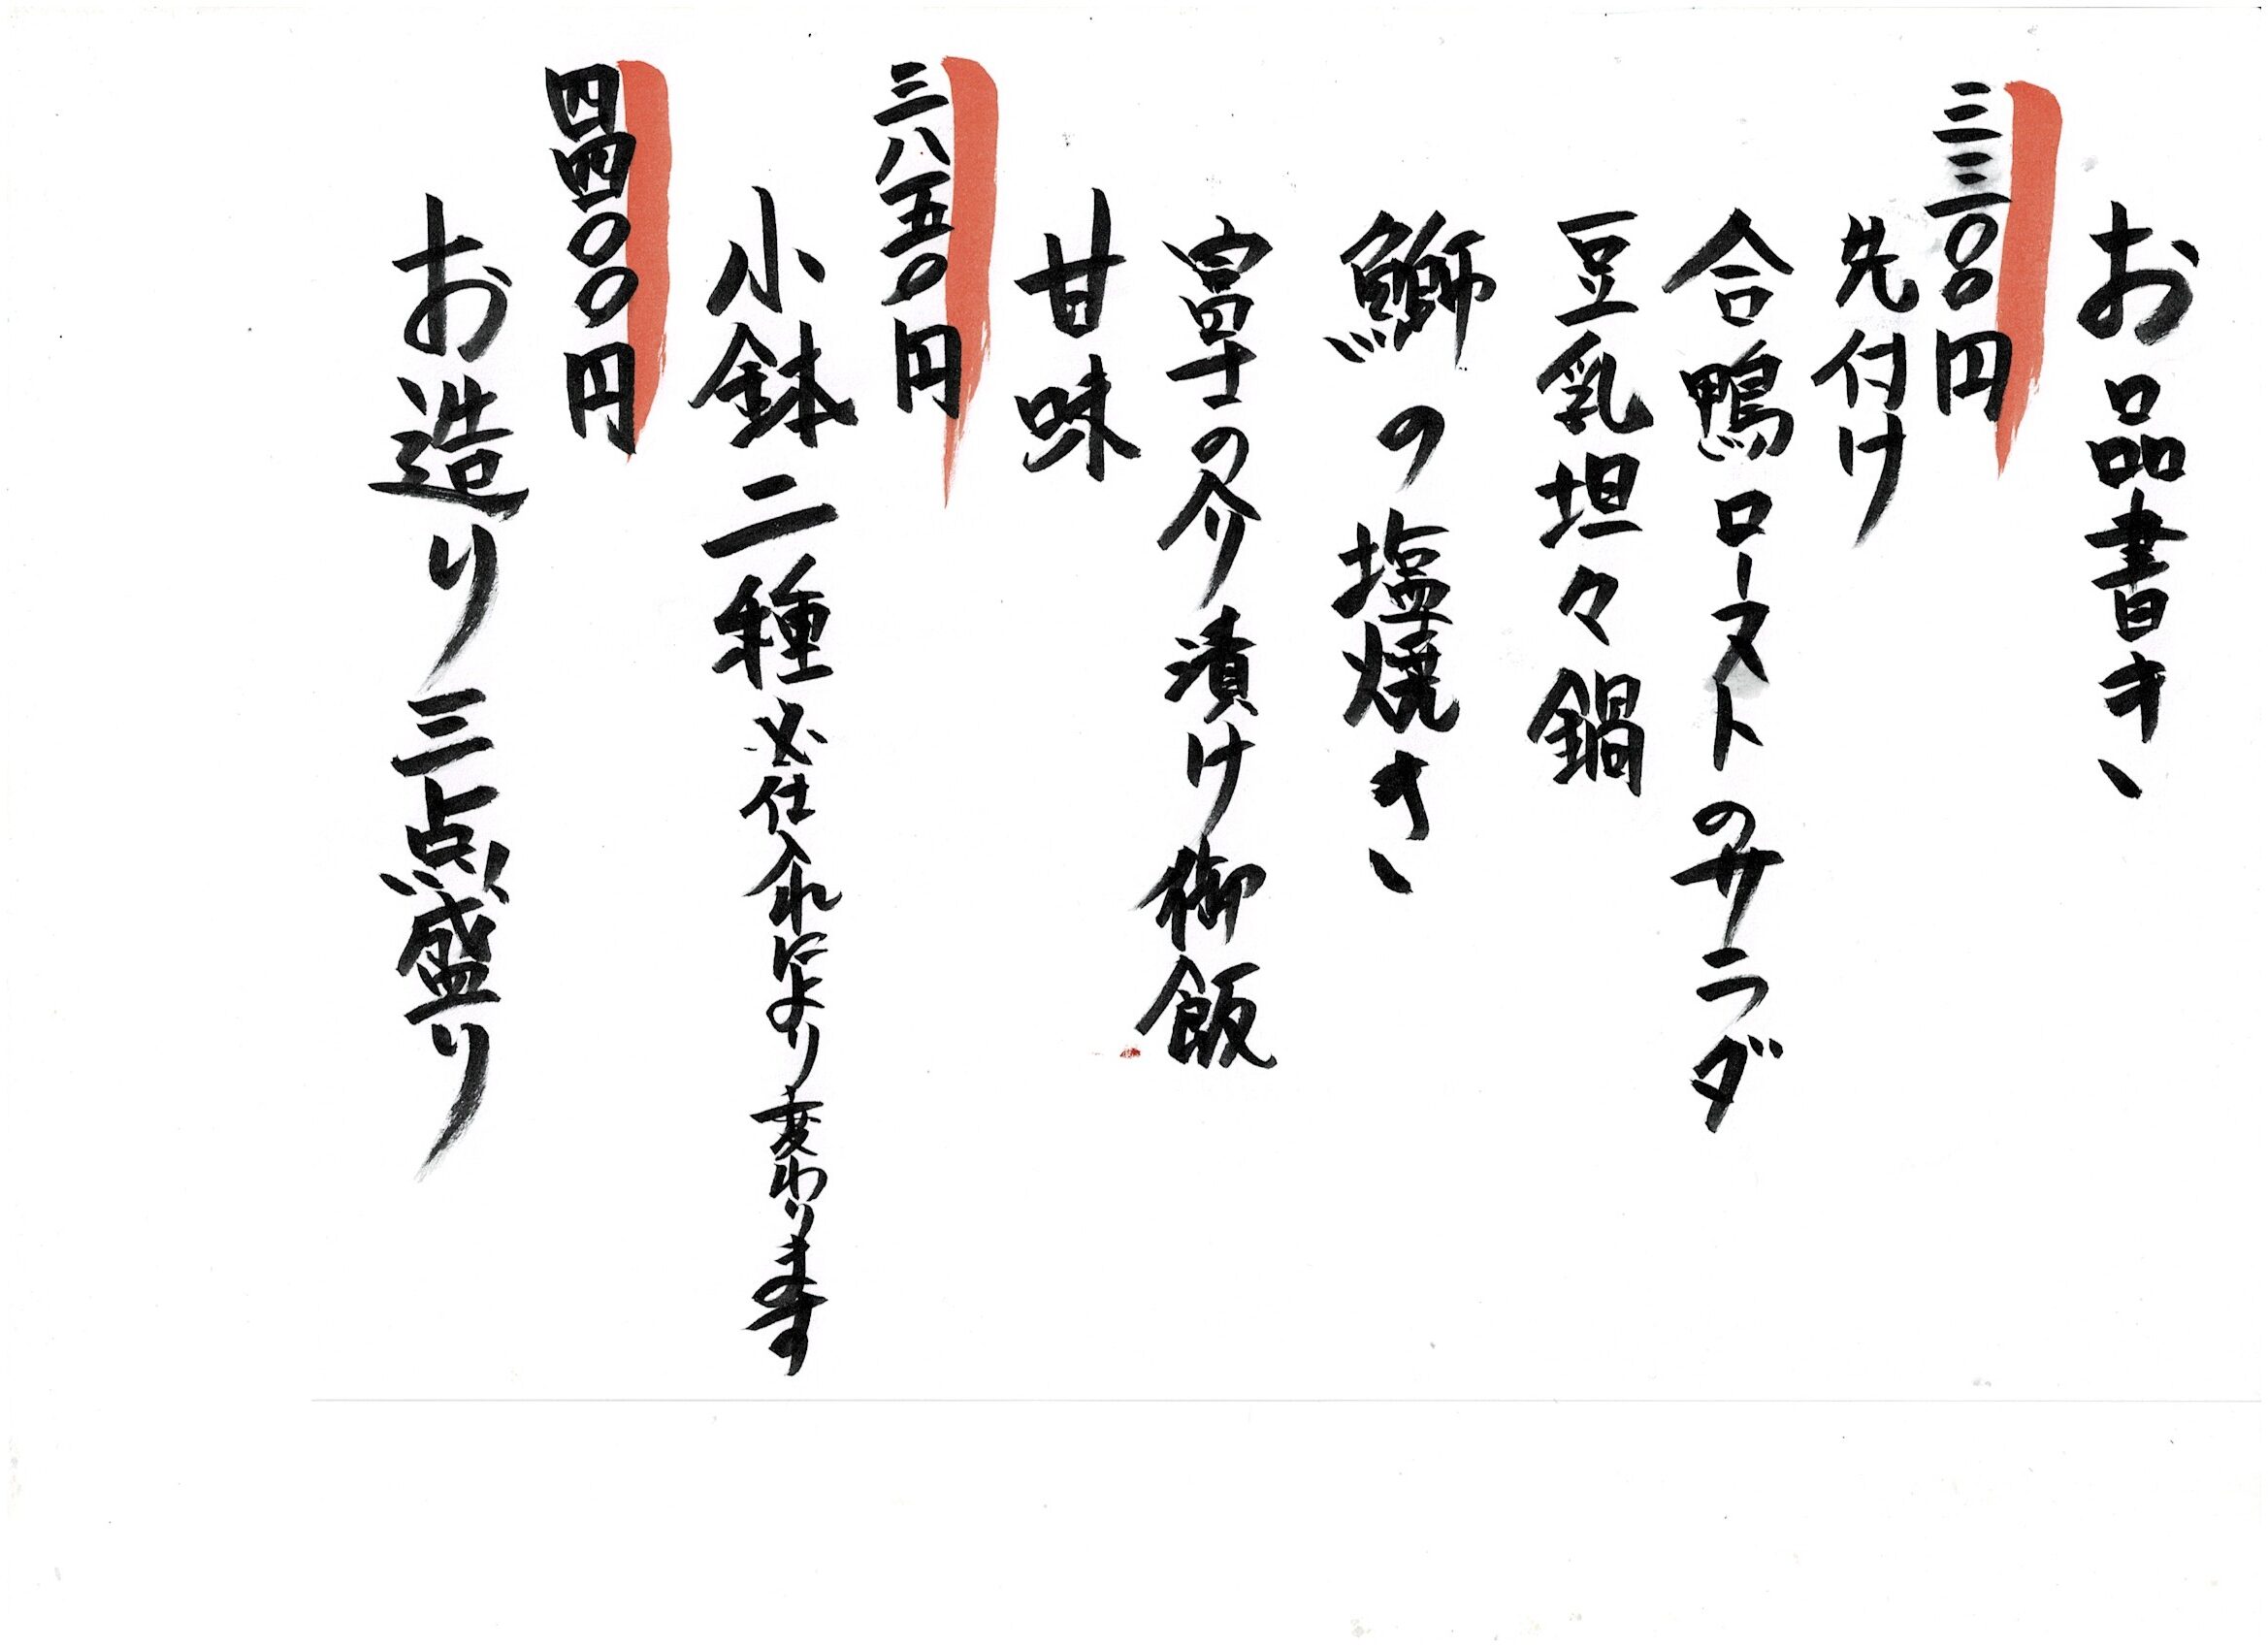 お品書き
三三〇〇円
先付け
合鴨ローストのサラダ
豆乳坦々鍋
鰤の塩焼き
富士の介漬け御飯
甘味
三八五〇円
小鉢二種 ※仕入れにより変わります
四四〇〇円
お造り三点盛り